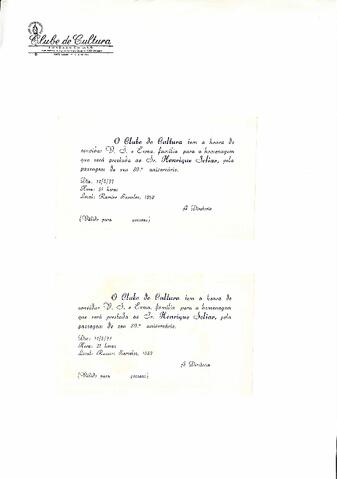 Clube de Cultura
O Clube de Cultura tem a honra de
convidar V. S. e Exma. família para a homenagem
que será prestada ao Sr. Henrique Scliar, pela
passagem de seu 80.º aniversário.
Dia:
Hora: 21 horas
Local: Ramiro Barcelos, 1853
A Diretoria
(Válido para pessoas)
O Clube de Cultura tem a honra de
convidar V. S. e Exma. família para a homenagem
que será prestada ao Sr. Henrique Scliar, pela
passagem de seu 80.º aniversário.
Dia:
Hora: 21 horas
Local: Ramiro Barcelos, 1853
A Diretoria
(Válido para pessoas)